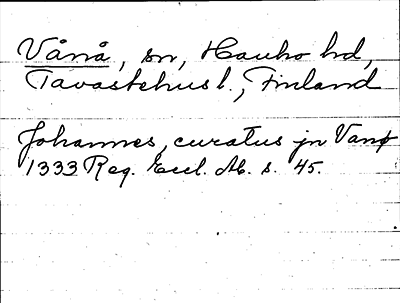 Vånå, sn, Hauho hd,
Tavastehus l., Finland
Johannes, curatus jn Vanø
1333 Reg. Eccl. Ab. s. 45.